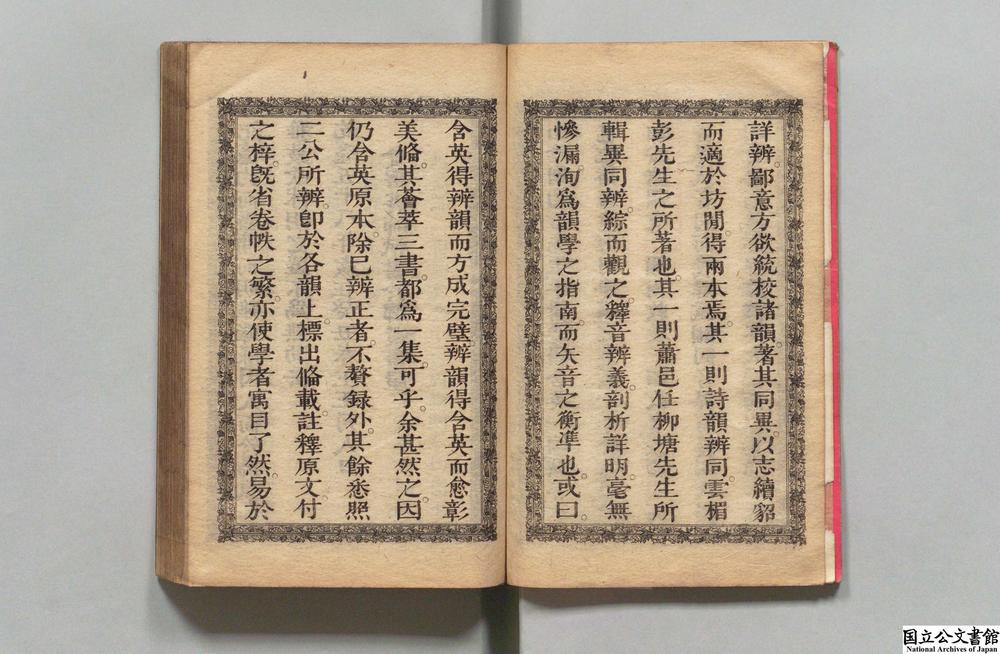 詳辨鄙意方欲統校諸韻著其同異以志續貂
而適於坊閒得兩本焉其一則詩韻辨同雲楣
彭先生之所著也其一則蕭邑任柳塘先生所
輯異同辨綜而觀之釋音辨義剖析詳明毫無
慘漏洵爲韻學之指南而矢音之衡準也或曰
含英得辨韻而方成完璧辨韻得含英而愈彰
美俻其薈萃三書都爲一集可乎余甚然之因
仍含英原本除已辨正者不贅録外其餘悉照
二公所辨卽於各韻上標出俻載註釋原文付
之梓旣省卷帙之繁亦使學者寓目了然易於
国立公文書館
National Archives of Japan